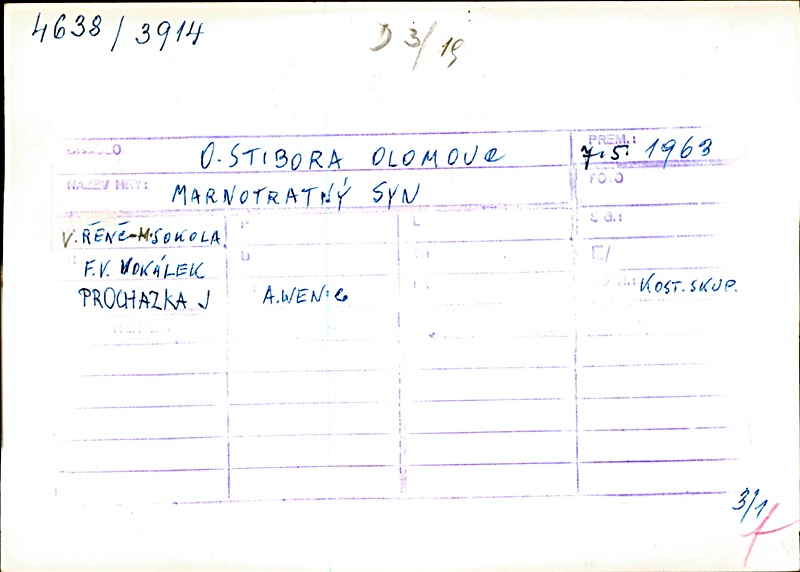 4638/3914
D 3/19
DIVADLO O. STIBORA OLOMOUC PREM.: 7.5. 1963
NÁZEV HRY: MARNOTRATNÝ SYN FOTO
V. RENČ-M.SOKOLA P L SG.:
F.V. VOKÁLEK E/
PROCHAZKA J A.WENIG KOST.SKUP.
3/1